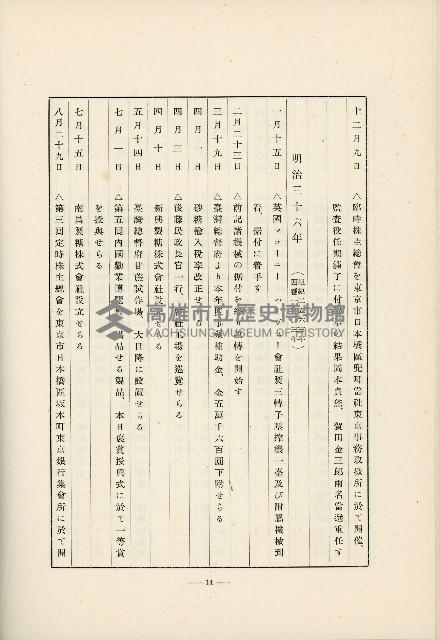 十二月九日　△臨時株主總會を東京市日本橋區兜町當社東京事務取扱所に於て開催、
監査役任期滿了に付改選の結果岡本貞烋、賀田金三郎兩名當選重任す
明治三十六年
一月十五日　△英國マコーニー、ハーヴェー會社製三轉子壓搾機一臺及び附屬機械到
着、据付に着手す
二月二十三日　△前記諸機械の据付を終り運轉を開始す
三月十九日　△臺灣總督府より本年度事業補助金、金五萬千六百圓下附せらる
四月一日　砂糖輸入稅率改正せらる
四月三日　△後藤民政長官一行、當社工場を巡覽せらる
四月十日　新興製糖株式會社設立せらる
五月十四日　臺灣總督府甘蔗試作場、大目降に設置せらる
七月一日　△第五回內國勸業博覽會へ出品せる製品、本日褒賞授與式に於て一等賞
を授與せらる
七月十五日　南昌製糖株式會社設立せらる
八月二十九日　△第三回定時株主總會を東京市日本橋區坂本町東京銀行集會所に於て開
高雄市立歷史博物館
KAOHSIUNG MUSEUM OF HISTORY
— 14 —